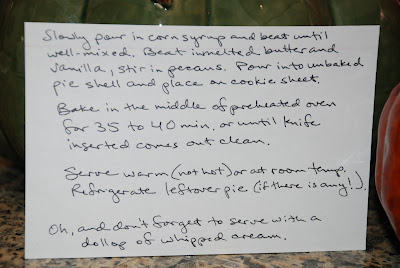 Slowly pour in corn syrup and beat until
well-mixed. Beat in melted butter and
vanilla, stir in pecans. Pour into unbaked
pie shell and place on cookie sheet.
Bake in the middle of preheated oven
for 35 to 40 min. or until knife
inserted comes out clean.
Serve warm (not hot) or at room temp.
Refrigerate leftover pie (if there is any!).
Oh, and don't forget to serve with a
dollop of whipped cream.